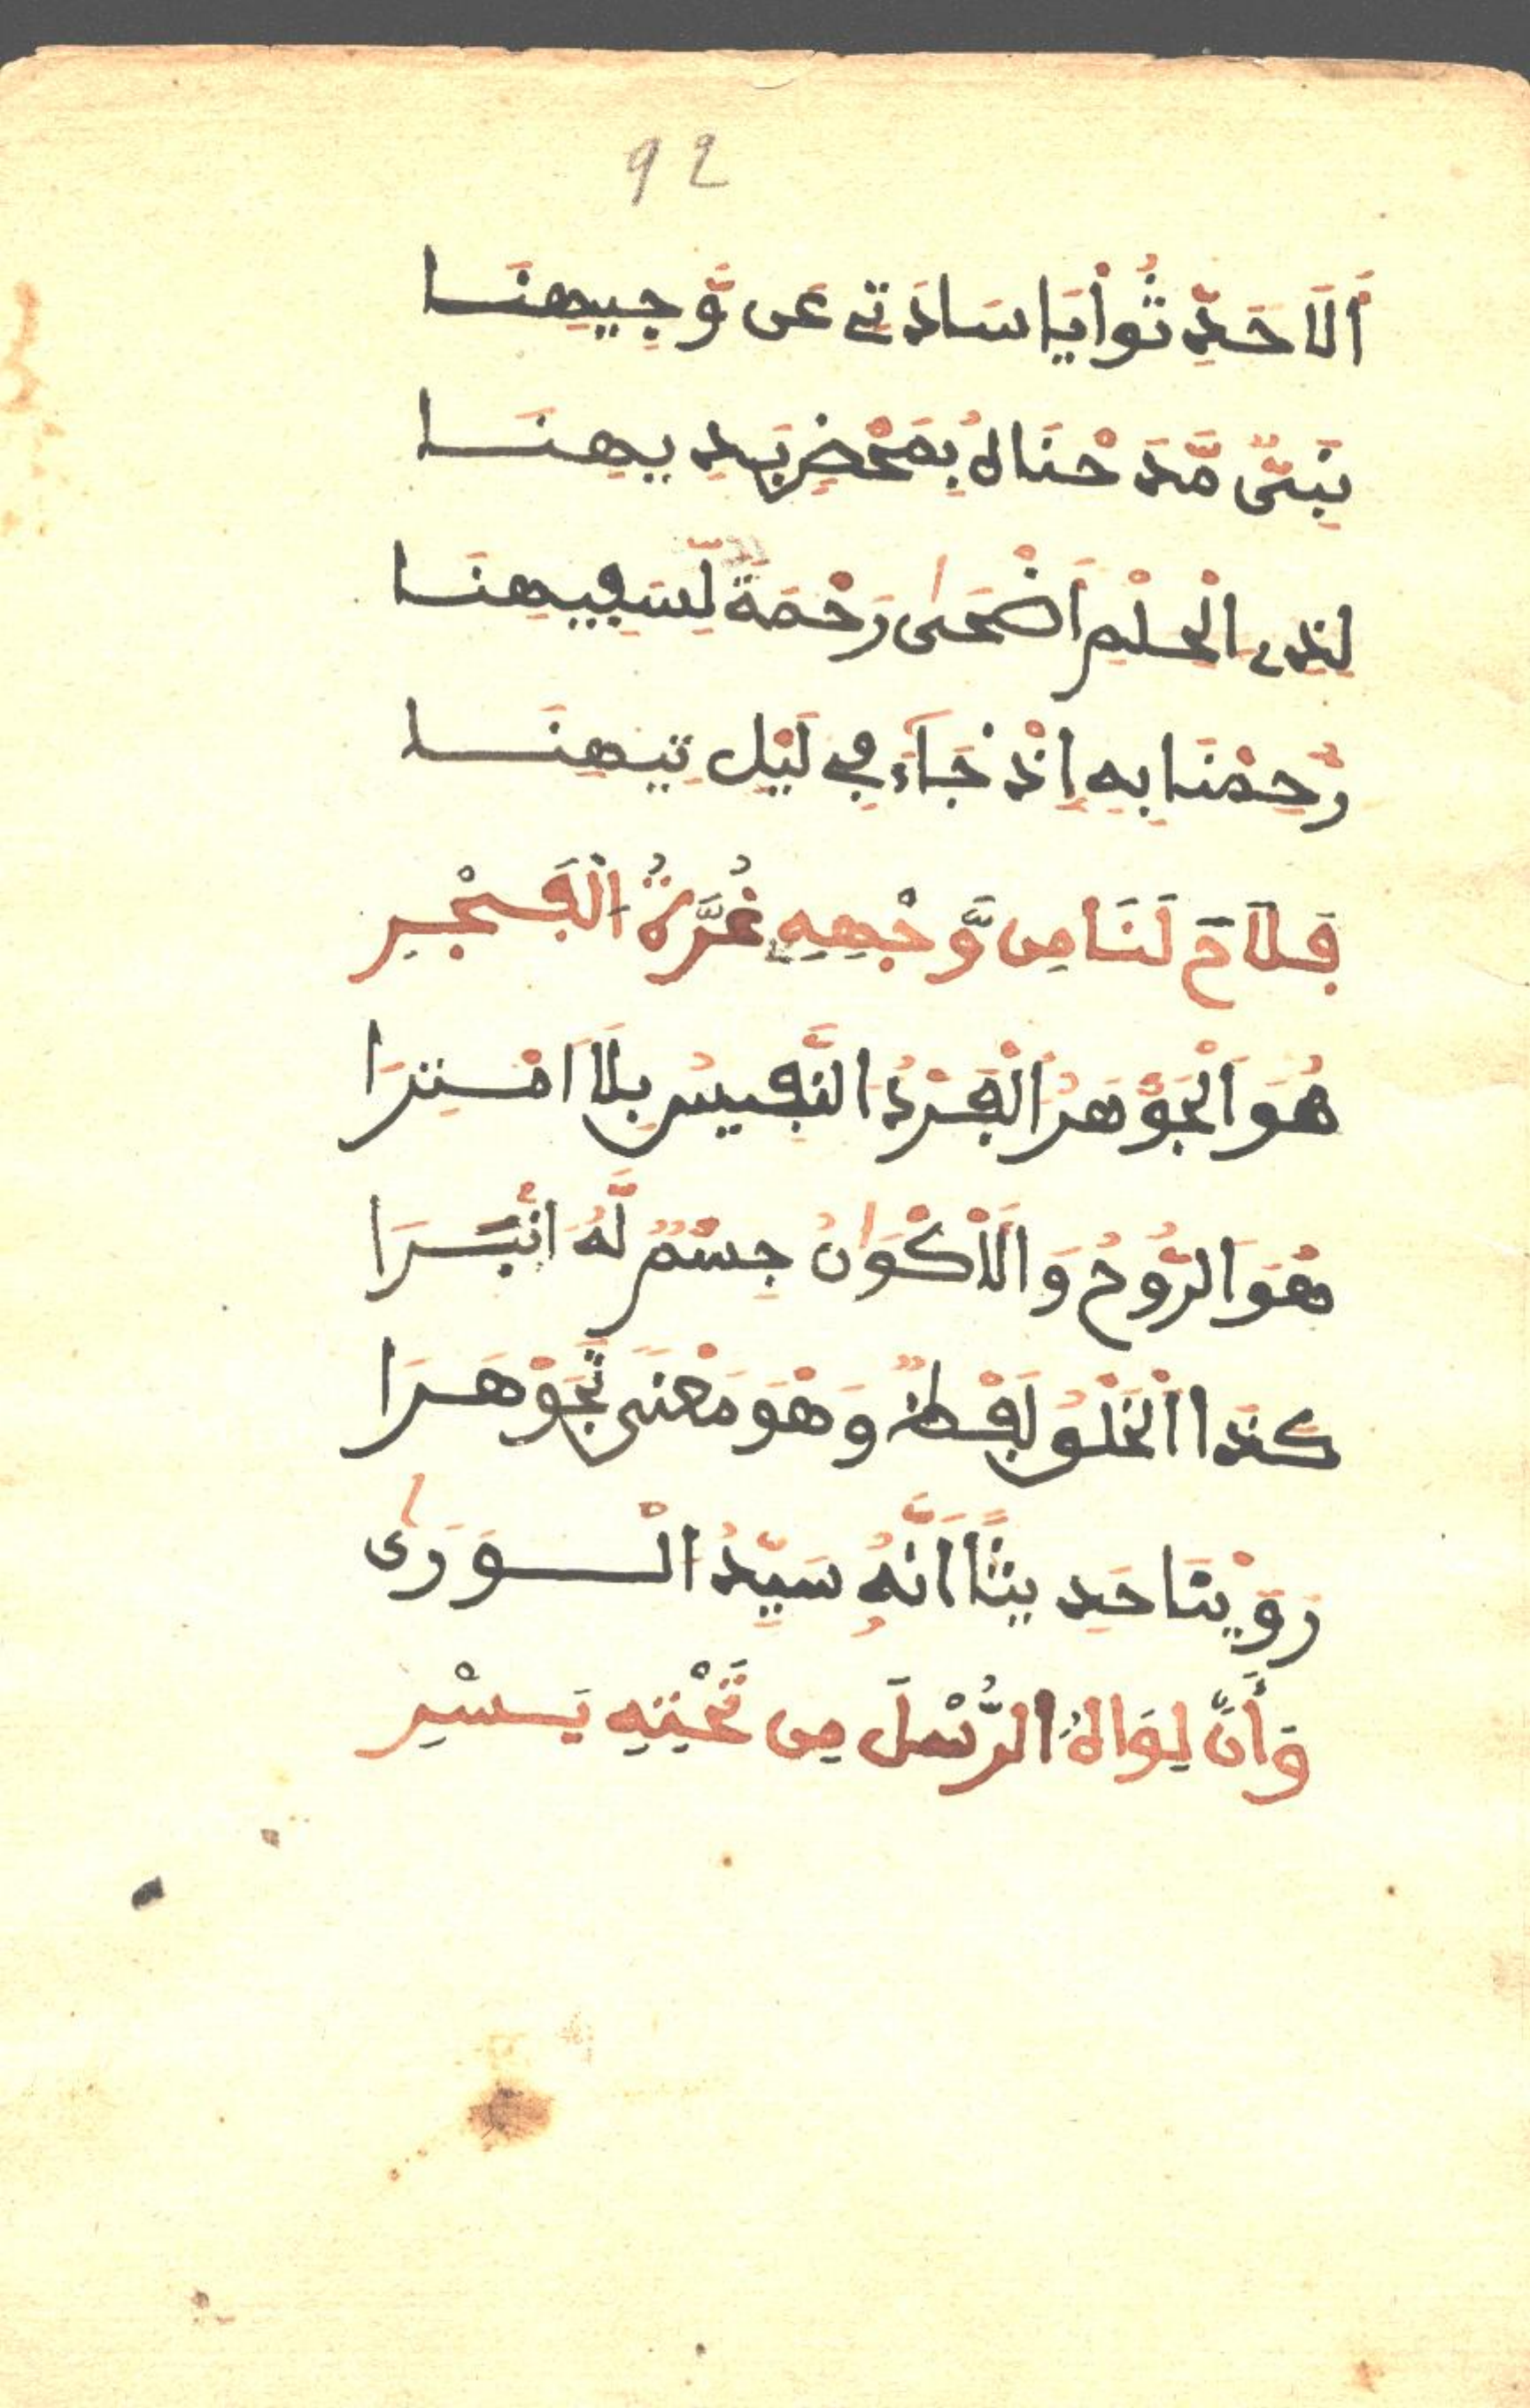 92
أَلَا حَدِّثُواْ يَا سَادَتِي عَن وَّجِيهِنَا
نَبِيٌّ مَّدَحْنَاهُ بِمَحْضِ بَدِيهِنَا
لِذِي الْحِلْمِ أَضْحَىٰ رَحْمَةً لِّسَفِيهِنَا
رُحِمْنَا بِهِ إِذْ جَاءَ فِي لَيْلِ تِيهِنَا
فَلَاحَ لَنَا مِن وَّجْهِهِ غُرَّةُ الْفَجْرِ
هُوَ الْجَوْهَرُ الْفَرْدُ النَّفِيسُ بِلَا امْتِرَا
هُوَ الرُّوحُ وَالْأَكْوَانُ جِسْمٌ لَّهُ انْبَرَا
كَذَا الْخَلْقُ لَفْظٌ وَهْوَ مَعْنَى تَجَوْهَرَا
رَوَيْنَا حَدِيثًا أَنَّهُ سَيِّدُ الْوَرَىٰ
وَأَنَّ لِوَاهُ الرُّسْلَ مِن تَحْتِهِ يَسْرِ